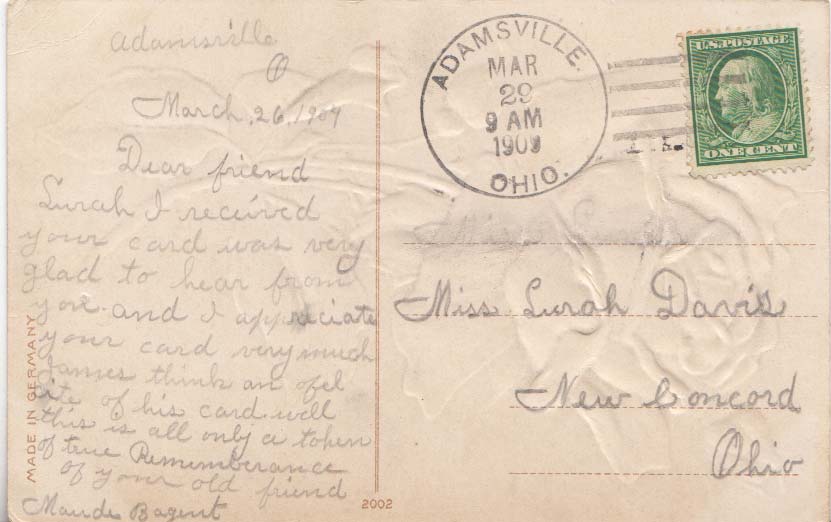 Adamsville
O
March, 26, 1909
Dear friend
Lurah I received
your card was very
glad to hear from
you. and I appreciate
your card very much
James think an ofel
ite of his card. well
this is all only a token
of true Rememberance
of your old friend
Maude Bagent
MADE IN GERMANY
2002
ADAMSVILLE.
MAR
29
9 AM
1909
OHIO.
U.S. POSTAGE
ONE CENT
Miss Lurah
Miss Lurah Davis
New Concord
Ohio